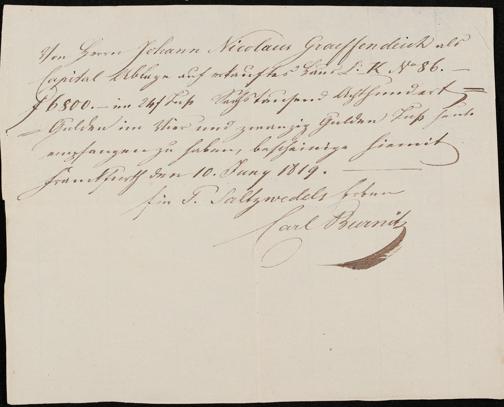 Von Herrn Johann Nicolaus Graeffendeich als
Capital Ablage auf erkauftes Haus L: K N° 86. —
f 6800. — im 24f Fuß Sechstausend Achthundert
= Gulden im Vier und zwanzig Gulden Fuß heute
empfangen zu haben, bescheinige hiermit
Frankfurth den 10. Juny 1819. —
für T. Saltzwedels Erben
Carl